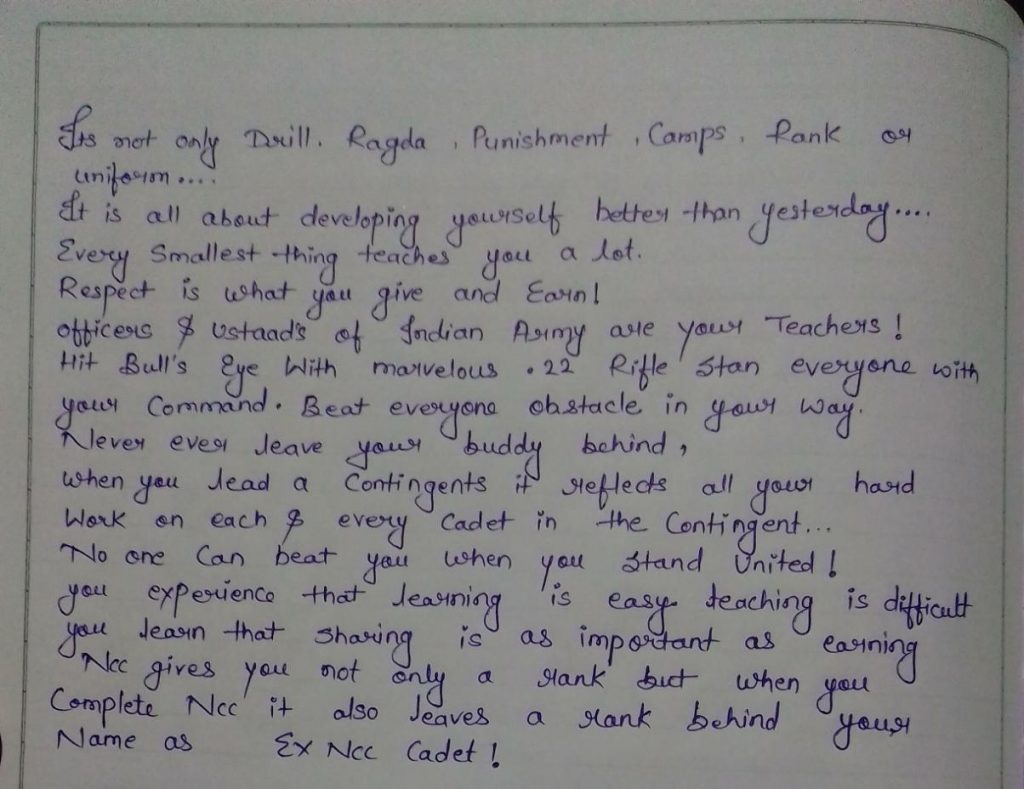 Its not only Drill. Ragda , Punishment , Camps , Rank or
uniform....
It is all about developing yourself better than yesterday....
Every Smallest thing teaches you a lot.
Respect is what you give and Earn!
officers & ustaad's of Indian Army are your Teachers !
Hit Bull's Eye With marvelous .22 Rifle Stan everyone with
your Command. Beat everyone obstacle in your way.
Never ever leave your buddy behind,
when you lead a Contingents it reflects all your hard
Work on each & every Cadet in the Contingent...
No one Can beat you when you Stand United !
you experience that learning is easy teaching is difficult
you learn that sharing is as important as earning
Ncc gives you not only a rank but when you
Complete Ncc it also leaves a rank behind your
Name as Ex Ncc Cadet !